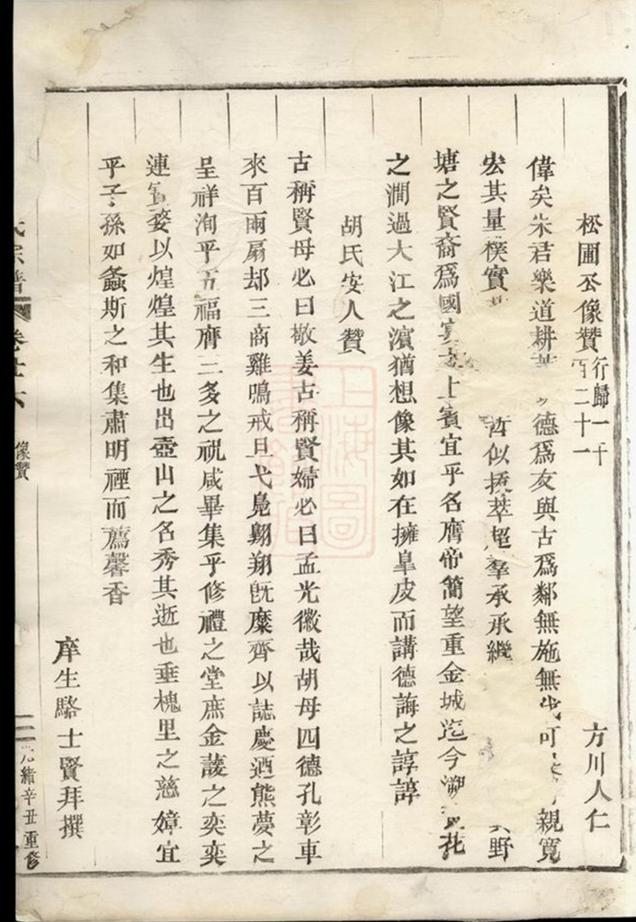 松圃公像贊 行歸一千百二十一
方川人仁
偉矣朱君樂道耕 德爲友與古爲鄰無施無伐可 親寬
宏其量樸實 哲似㧞萃超羣承承繼 野
塘之賢裔爲國 上賓宜乎名膺帝簡望重金城迄今溯 花
之澗過大江之濵猶想像其如在擁臯皮而講德誨之諄諄
胡氏安人贊
古稱賢母必曰敬姜古稱賢婦必曰孟光徽哉胡母四德孔彰車
來百兩扇却三商雞鳴戒旦弋鳧翺翔旣糜齊以誌慶迺熊夢之
呈祥洵乎五福膺三多之祝咸畢集乎修禮之堂庶金萲之奕奕
連寳婺以煌煌其生也出壺山之名秀其逝也垂槐里之慈嫜宜
乎子孫如螽斯之和集肅明禋而薦馨香
庠生駱士賢拜撰
氏宗譜 卷 像贊 二 光緒辛丑重修